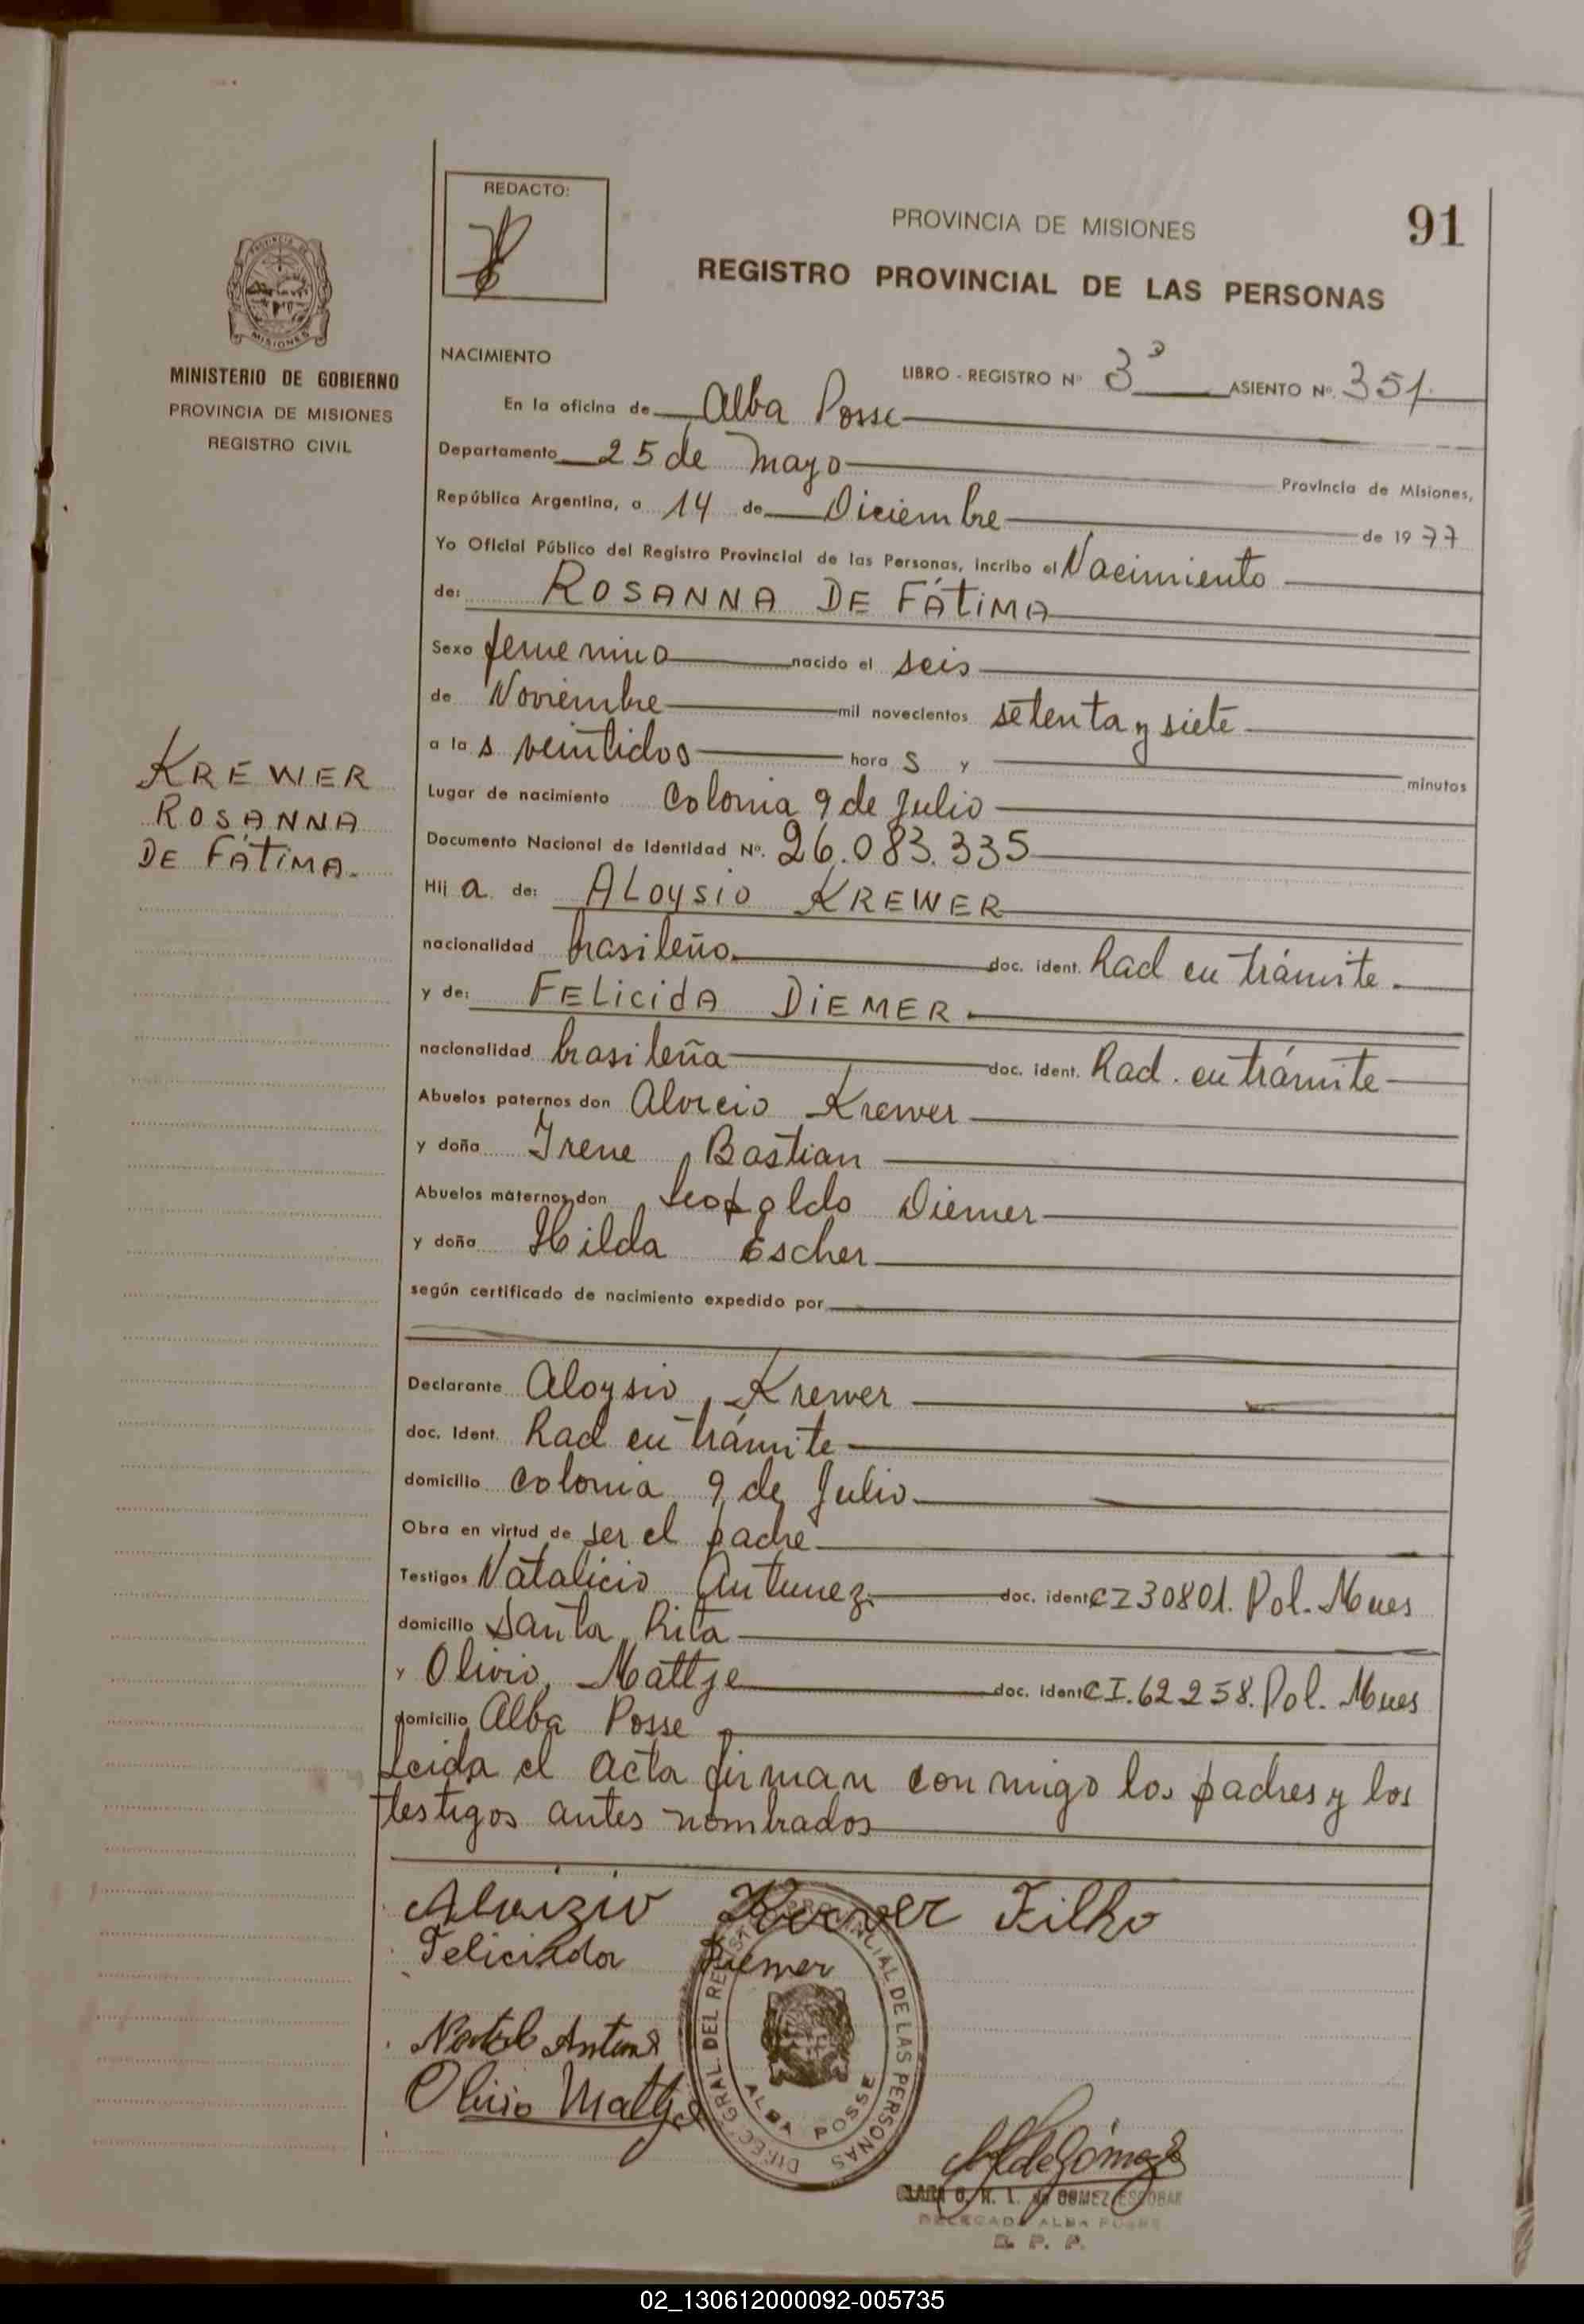 REDACTO:
PROVINCIA DE MISIONES
91
REGISTRO PROVINCIAL DE LAS PERSONAS
MISIONES
MINISTERIO DE GOBIERNO
PROVINCIA DE MISIONES
REGISTRO CIVIL
NACIMIENTO
LIBRO - REGISTRO Nº 3º ASIENTO Nº. 351.
En la oficina de Alba Posse
Departamento 25 de Mayo Provincia de Misiones,
República Argentina, a 14 de Diciembre de 1977
Yo Oficial Público del Registro Provincial de las Personas, incribo el Nacimiento
de: ROSANNA DE FÁTIMA
Sexo femenino nacido el seis
de Noviembre mil novecientos setenta y siete
a la s veintidos hora s y minutos
KREWER
ROSANNA
DE FÁTIMA.
Lugar de nacimiento Colonia 9 de Julio
Documento Nacional de Identidad Nº. 26.083.335
Hij a de: ALOYSIO KREWER
nacionalidad brasileño. doc. ident. Rad en trámite.
y de: FELICIDA DIEMER.
nacionalidad brasileña doc. ident. Rad. en trámite
Abuelos paternos don Aloicio Krewer
y doña Irene Bastian
Abuelos maternos don Leopoldo Diemer
y doña Hilda Escher
según certificado de nacimiento expedido por
Declarante Aloysio Krewer
doc. ident. Rad en trámite
domicilio Colonia 9 de Julio
Obra en virtud de ser el padre
Testigos Natalicio Antunez. doc. ident CI 30801. Pol. Mnes
domicilio Santa Rita
y Olivio Mattje doc. ident CI. 62258. Pol. Mnes
domicilio Alba Posse
Leida el acta firman conmigo los padres y los
testigos antes nombrados
Aloizio Krewer Filho
Felicida Diemer
Olivio Mattje
DIREC. GRAL DEL REGISTRO PROVINCIAL DE LAS PERSONAS
ALBA POSSE
de Gómez
DE GOMEZ ESCOBAR
DELEGADA ALBA POSSE
R. P. P.
02_130612000092-005735